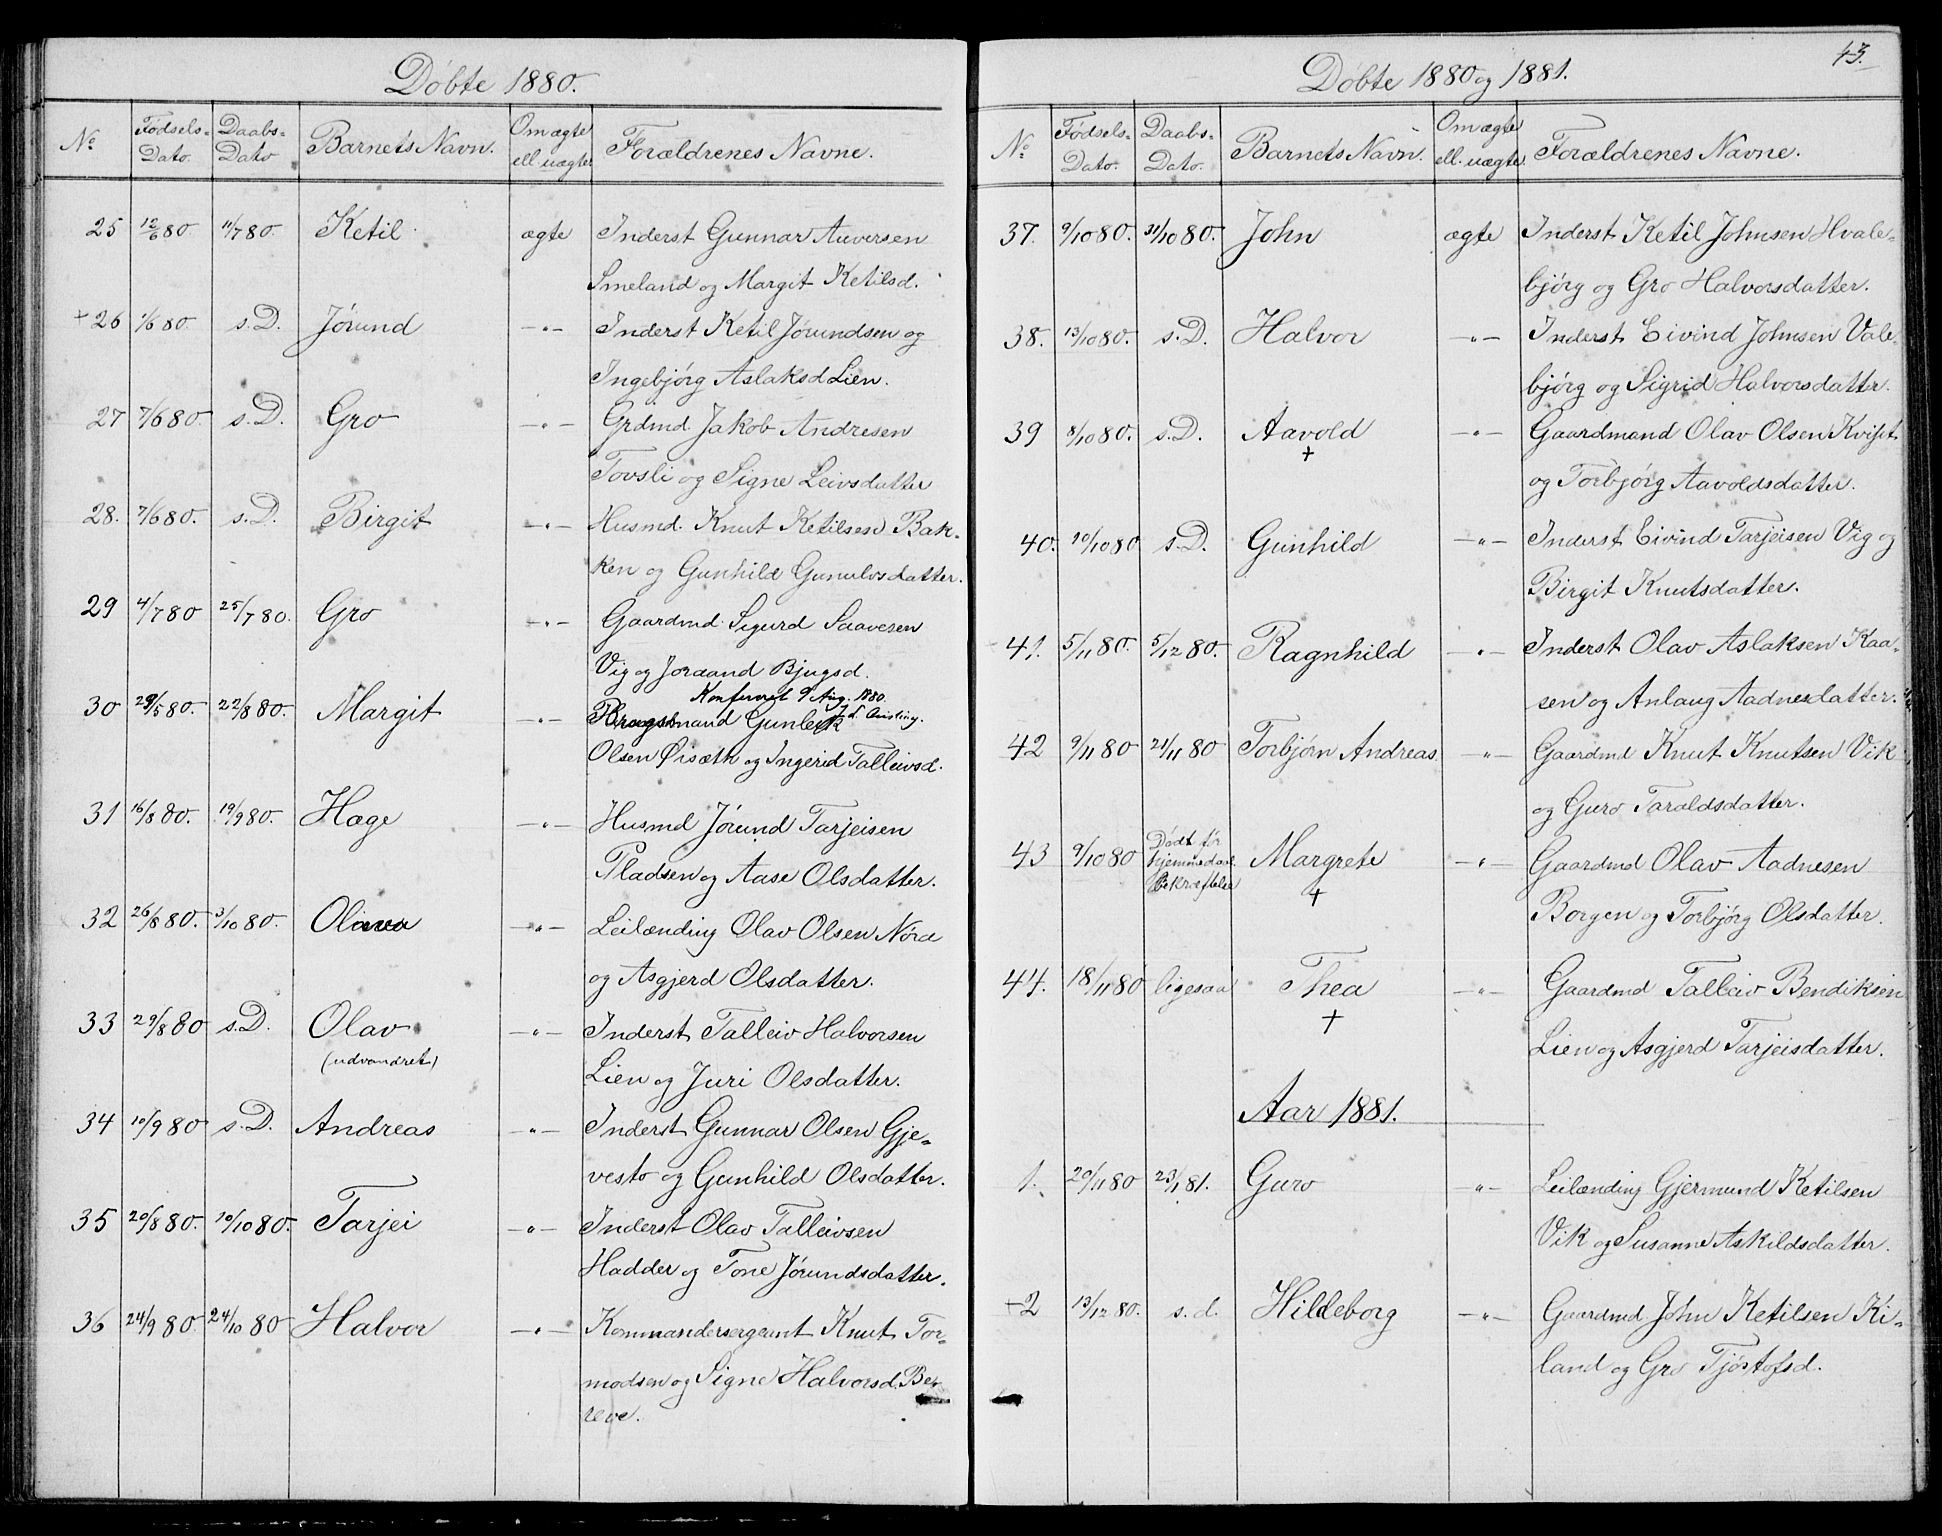 Døbte 1880.
№ Fødsels-Dato. Daabs-Dato Barnets Navn. Om ægte ell. uægte Forældrenes Navne.
25 12/6 80 11/7 80. Ketil ægte Inderst Gunnar Auversen
Smeland og Margit Ketilsd.
+26 1/6 80. s.D. Jørund —"— Inderst Ketil Jørundsen og
Ingebjørg Aslaksd Lien.
27 7/6 80. s.D. Gro —"— Grdmd. Jakob Andresen
Tovsli og Signe Leivsdatter
28. 7/6 80. s.D. Birgit —"— Husmd. Knut Ketilsen Bak-
ken og Gunhild Gunulvsdatter.
29 4/7 80 25/7 80. Gro —"— Gaardmd. Sigurd Saavesen
Vig og Joraand Bjugsd.
Konfereret 9 Aug. 1880.
30 29/5 80. 22/8 80. Margit —"— Brugsmand Gunleik
Olsen Øisæth og Ingerid Talleivsd.
31 16/8 80. 19/9 80. Hæge —"— Husmd Jørund Tarjeisen
Pladsen og Aase Olsdatter.
32 26/8 80. 3/10 80. —"— Leilænding Olav Olsen Nórd
og Asgjerd Olsdatter.
33 29/8 80 s.D. Olav —"— Inderst Talleiv Halvorsen
(udvandret)
Lien og Juri Olsdatter.
34 10/9 80 s.D. Andreas —"— Inderst Gunnar Olsen Gje-
vesto og Gunhild Olsdatter.
35 20/8 80. 10/10 80. Tarjei —"— Inderst Olav Talleivsen
Hadder og Tone Jørundsdatter.
36 24/9 80. 24/10 80 Halvor —"— Kommandersergeant Knut Tor-
modsen og Signe Halvorsd. Be-
reve.
43.
Døbte 1880 og 1881.
№ Fødsels-Dato. Daabs-Dato. Barnets Navn. Om ægte ell. uægte Forældrenes Navne.
37. 9/10 80. 31/10 80. John ægte Inderst Ketil Johnsen Hvale-
bjørg og Gro Halvorsdatter.
38. 13/10 80. s.D. Halvor —"— Inderst Eivind Johnsen Vale-
bjørg og Sigrid Halvorsdatter.
39 8/10 80. s.D. Aavold —"— Gaardmand Olav Olsen Kvist
+
og Torbjørg Aavoldsdatter.
40. 10/10 80 s.D. Gunhild —"— Inderst Eivind Tarjeisen Vig og
Birgit Knutsdatter.
41. 5/11 80. 5/12 80. Ragnhild —"— Inderst Olav Aslaksen Kaa-
sen og Anlaug Aadnesdatter.
42 9/11 80 21/11 80 Torbjørn Andreas —"— Gaardmd Knut Knutsen Vik
og Guro Taraldsdatter.
43 9/10 80 Dødt før hjemmedaab. Bekræftelse Margrete —"— Gaardmd Olav Aadnesen
+
Borgen og Torbjørg Olsdatter.
44. 18/11 80 ligesaa Thea —"— Gaardmd Talleiv Bendiksen
+
Lien og Asgjerd Tarjeisdatter.
Aar 1881.
1. 20/11 80 23/1 81. Guro —"— Leilænding Gjermund Ketilsen
Vik og Susanne Askildsdatter.
+2 13/12 80. s.d. Hildeborg —"— Gaardmd John Ketilsen Ki-
land og Gro Tjøstofsd.